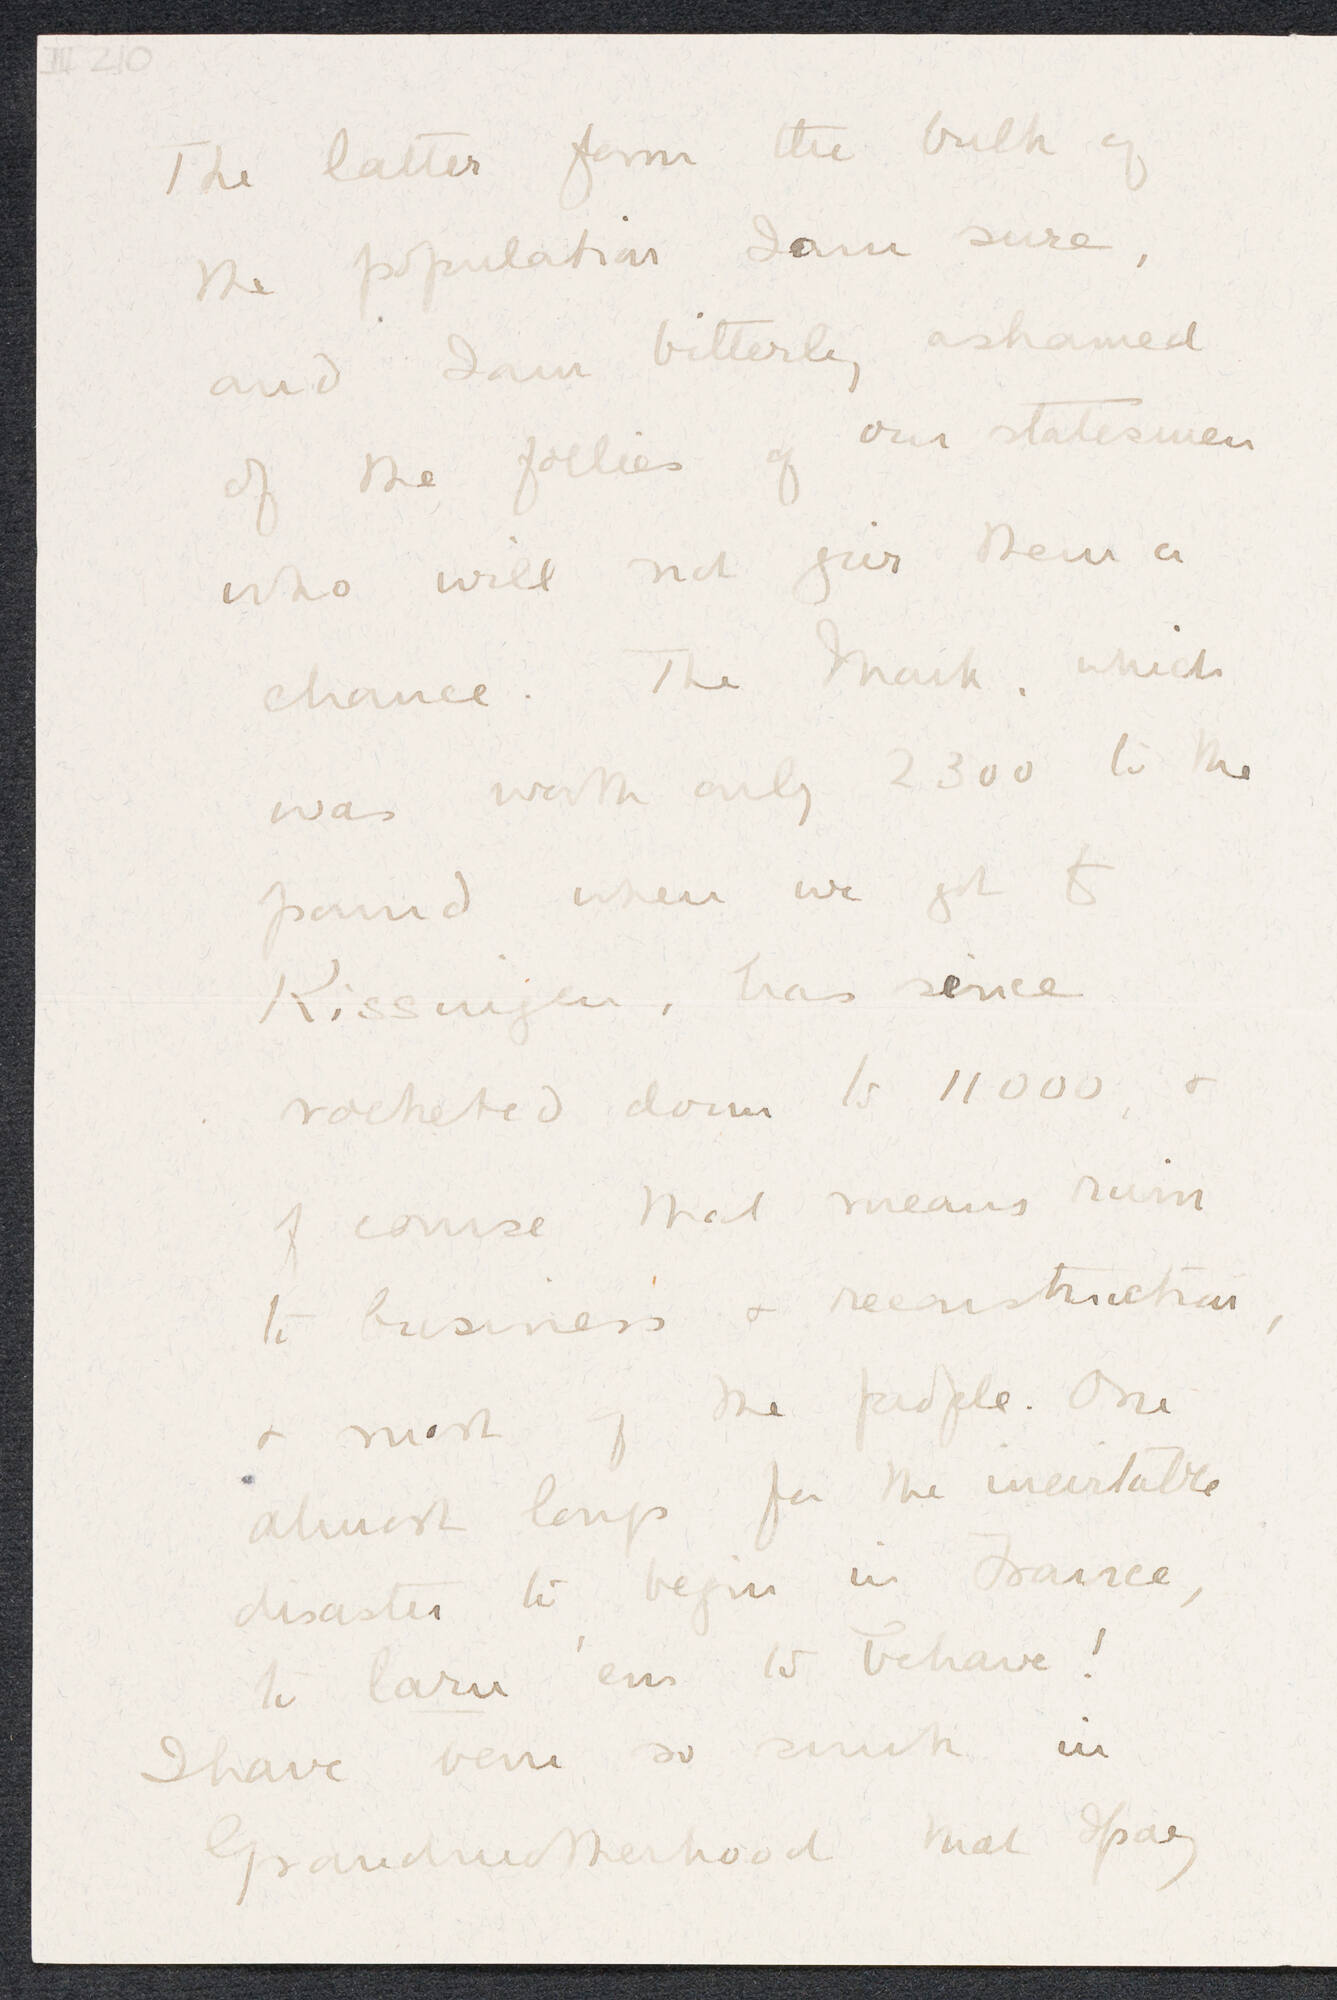 III 210
The latter form the bulk of
the population I am sure,
and I am bitterly ashamed
of the follies of our statesmen
who will not give them a
chance. The Mark, which
was worth only 2300 to the
pound when we got to
Kissingen, has since
rocketed down to 11000, &
of course that means ruin
to business & reconstruction,
& most of the people. One
almost longs for the inevitable
disaster to begin in France,
to larn 'em to behave!
I have been so sunk in
Grandmotherhood that I pay